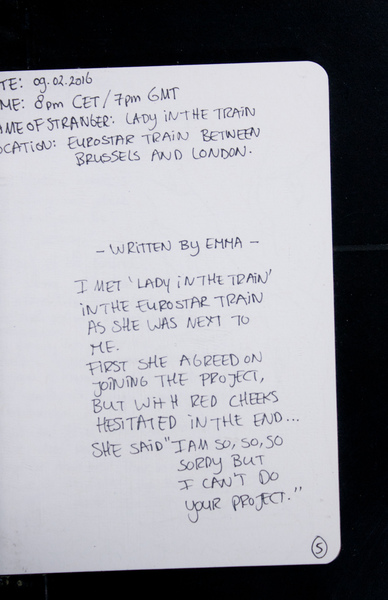 TE: 09.02.2016
ME: 8pm CET/7pm GMT
AME OF STRANGER: LADY IN THE TRAIN
OCATION: EUROSTAR TRAIN BETWEEN
BRUSSELS AND LONDON.
- WRITTEN BY EMMA -
I MET 'LADY IN THE TRAIN'
IN THE EUROSTAR TRAIN
AS SHE WAS NEXT TO
ME.
FIRST SHE AGREED ON
JOINING THE PROJECT,
BUT WITH RED CHEEKS
HESITATED IN THE END...
SHE SAID "I AM SO, SO, SO
SORRY BUT
I CAN'T DO
YOUR PROJECT."
5